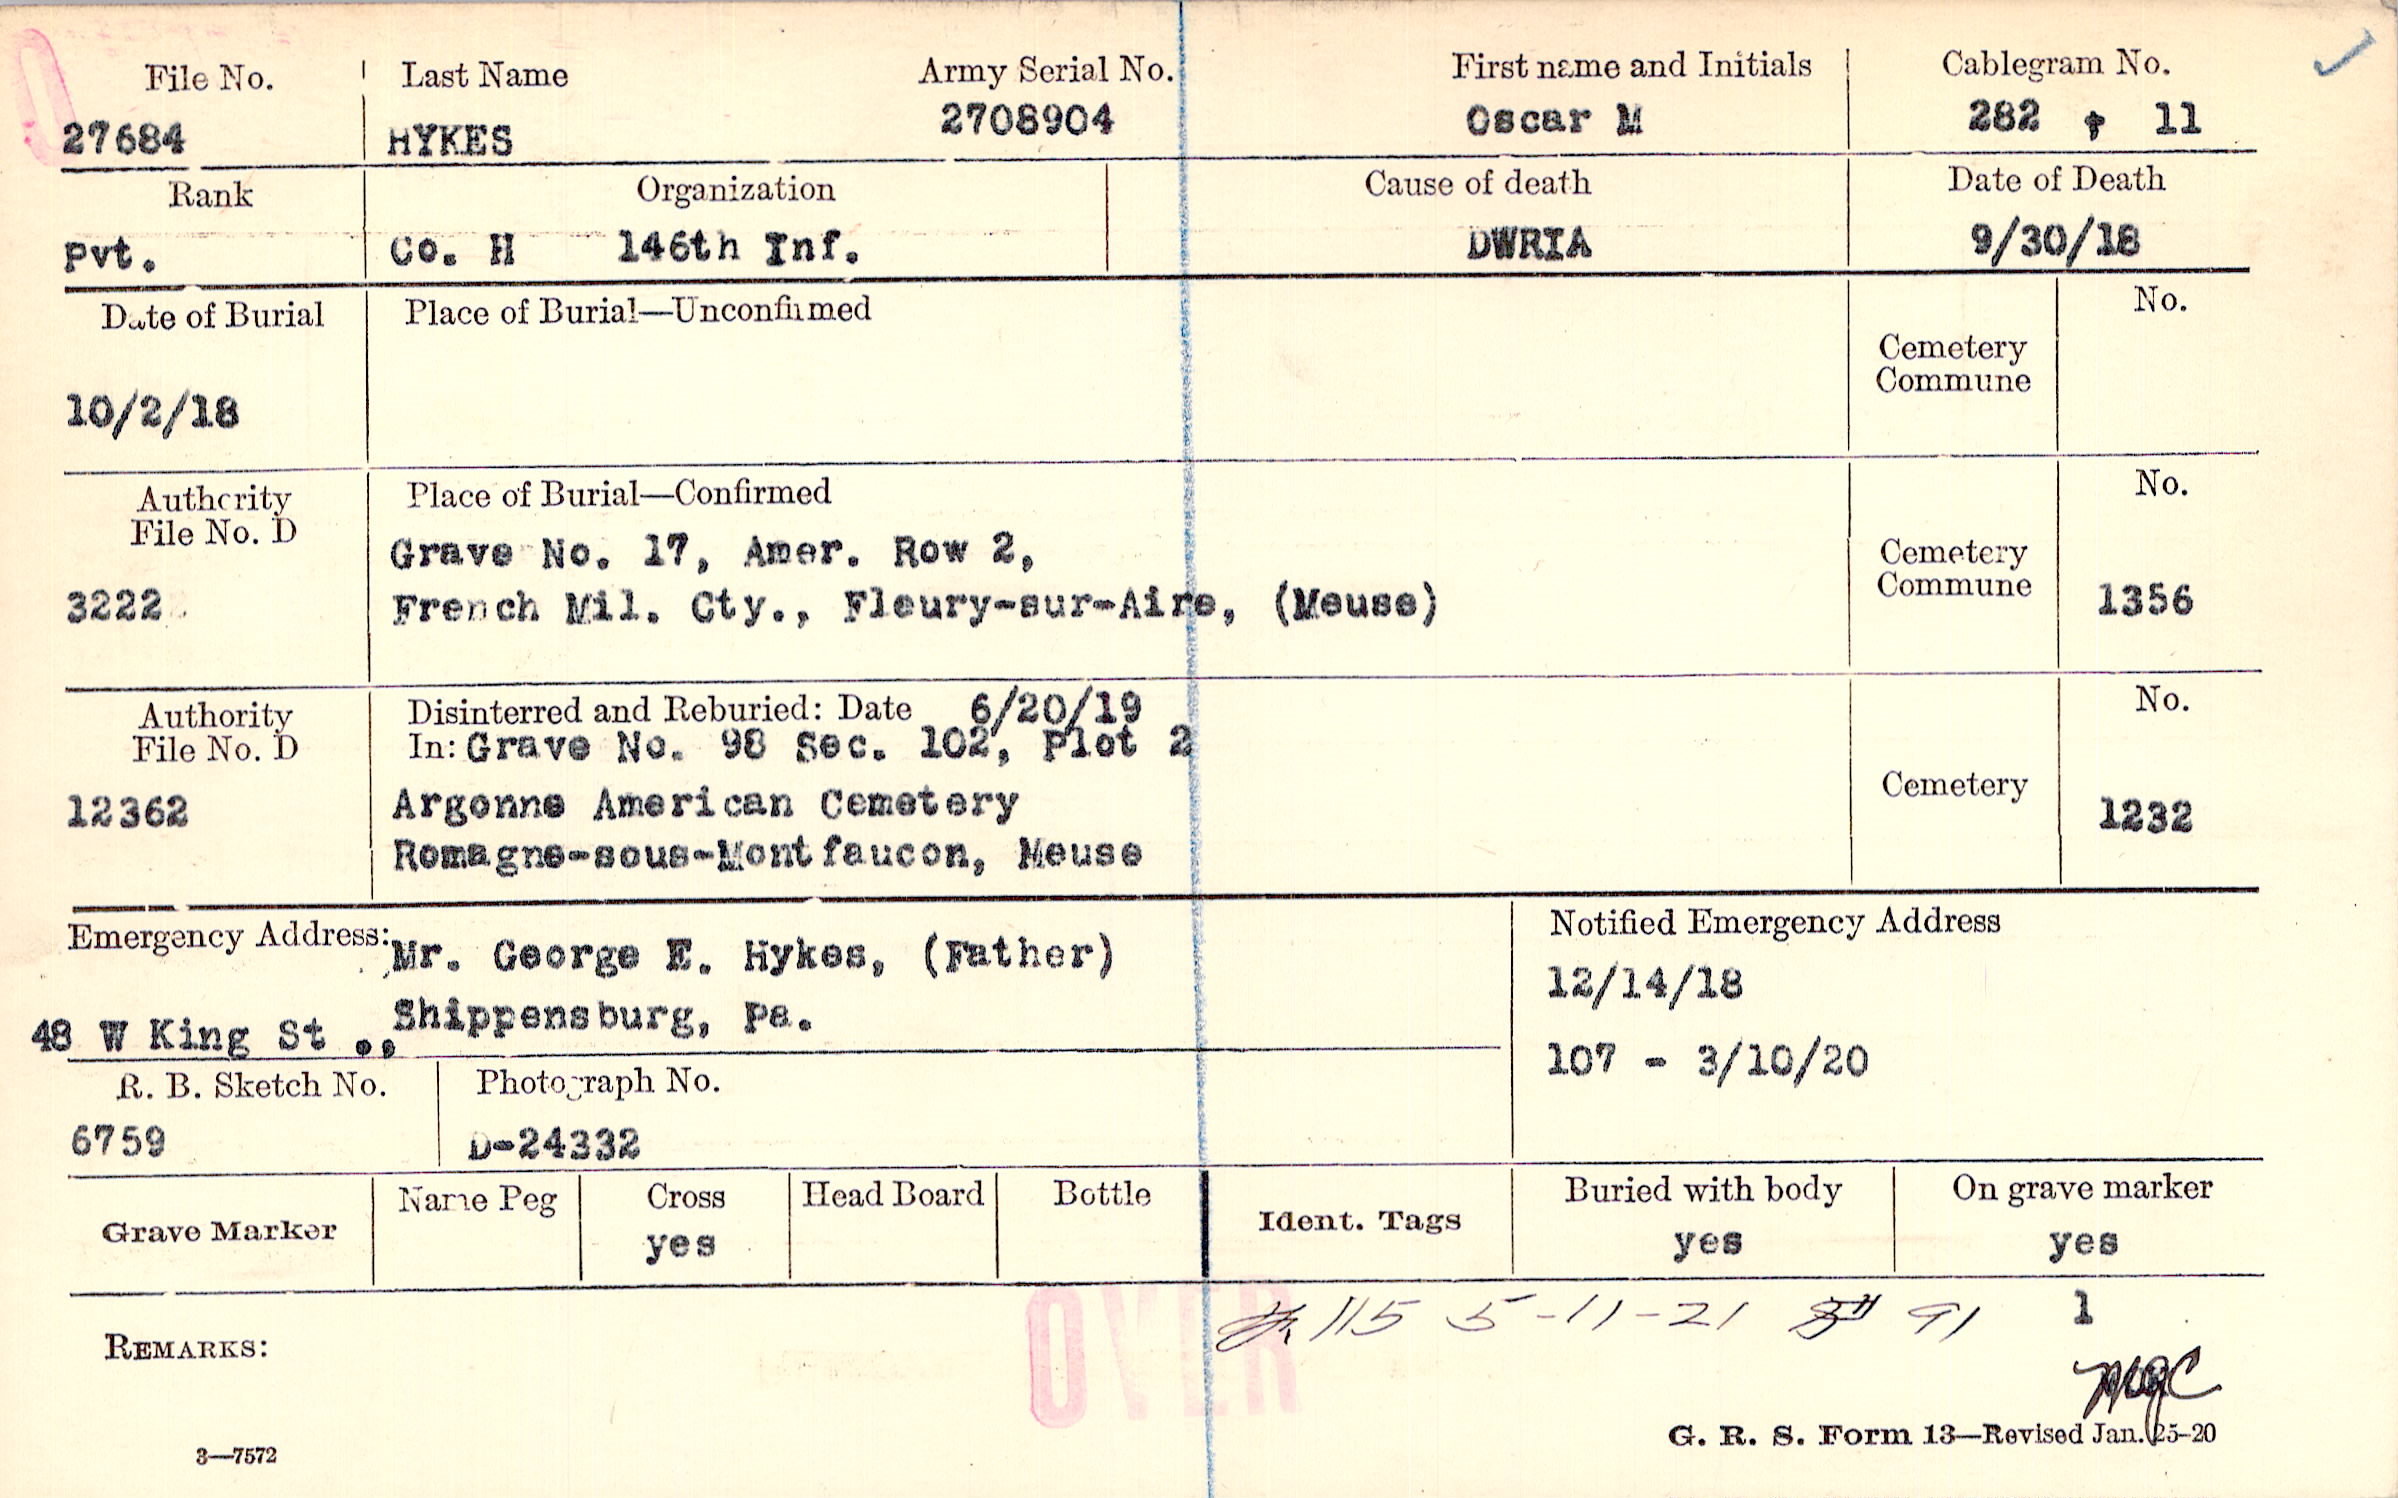 File No. Last Name Army Serial No. First name and Initials Cablegram No.
27684 HYKES 2708904 Oscar M 282 11
Rank Organization Cause of death Date of Death
Pvt. Co. H 146th Inf. DWRIA 9/30/18
Date of Burial Place of Burial—Unconfirmed No.
Cemetery
Commune
10/2/18
Authority Place of Burial—Confirmed No.
File No. D
Grave No. 17, Amer. Row 2, Cemetery
3222 French Mil. Cty., Fleury-sur-Aire, (Meuse) Commune 1356
Authority Disinterred and Reburied: Date 6/20/19 No.
File No. D In: Grave No. 98 Sec. 102, Plot 2
12362 Argonne American Cemetery Cemetery 1232
Romagne-sous-Montfaucon, Meuse
Emergency Address: Mr. George E. Hykes, (Father) Notified Emergency Address
12/14/18
48 W King St ., Shippensburg, Pa.
107 - 3/10/20
R. B. Sketch No. Photograph No.
6759 D-24332
Grave Marker Name Peg Cross Head Board Bottle Ident. Tags Buried with body On grave marker
yes yes yes
115 5-11-21 91 1
REMARKS:
OVER
G. R. S. Form 13—Revised Jan. 25-20
3—7572